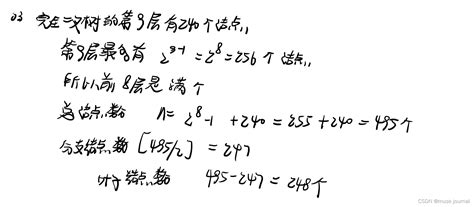 03 完全二叉树的第9层有240个结点,,
第9层最多有 2^9-1 = 2^8 = 256 个结点,,
所以前8层是满个
总结点数 n = 2^8 - 1 + 240 = 255 + 240 = 495个
分支结点数 [495/2] = 247
叶子结点数 495 - 247 = 248个
CSDN @muse journal